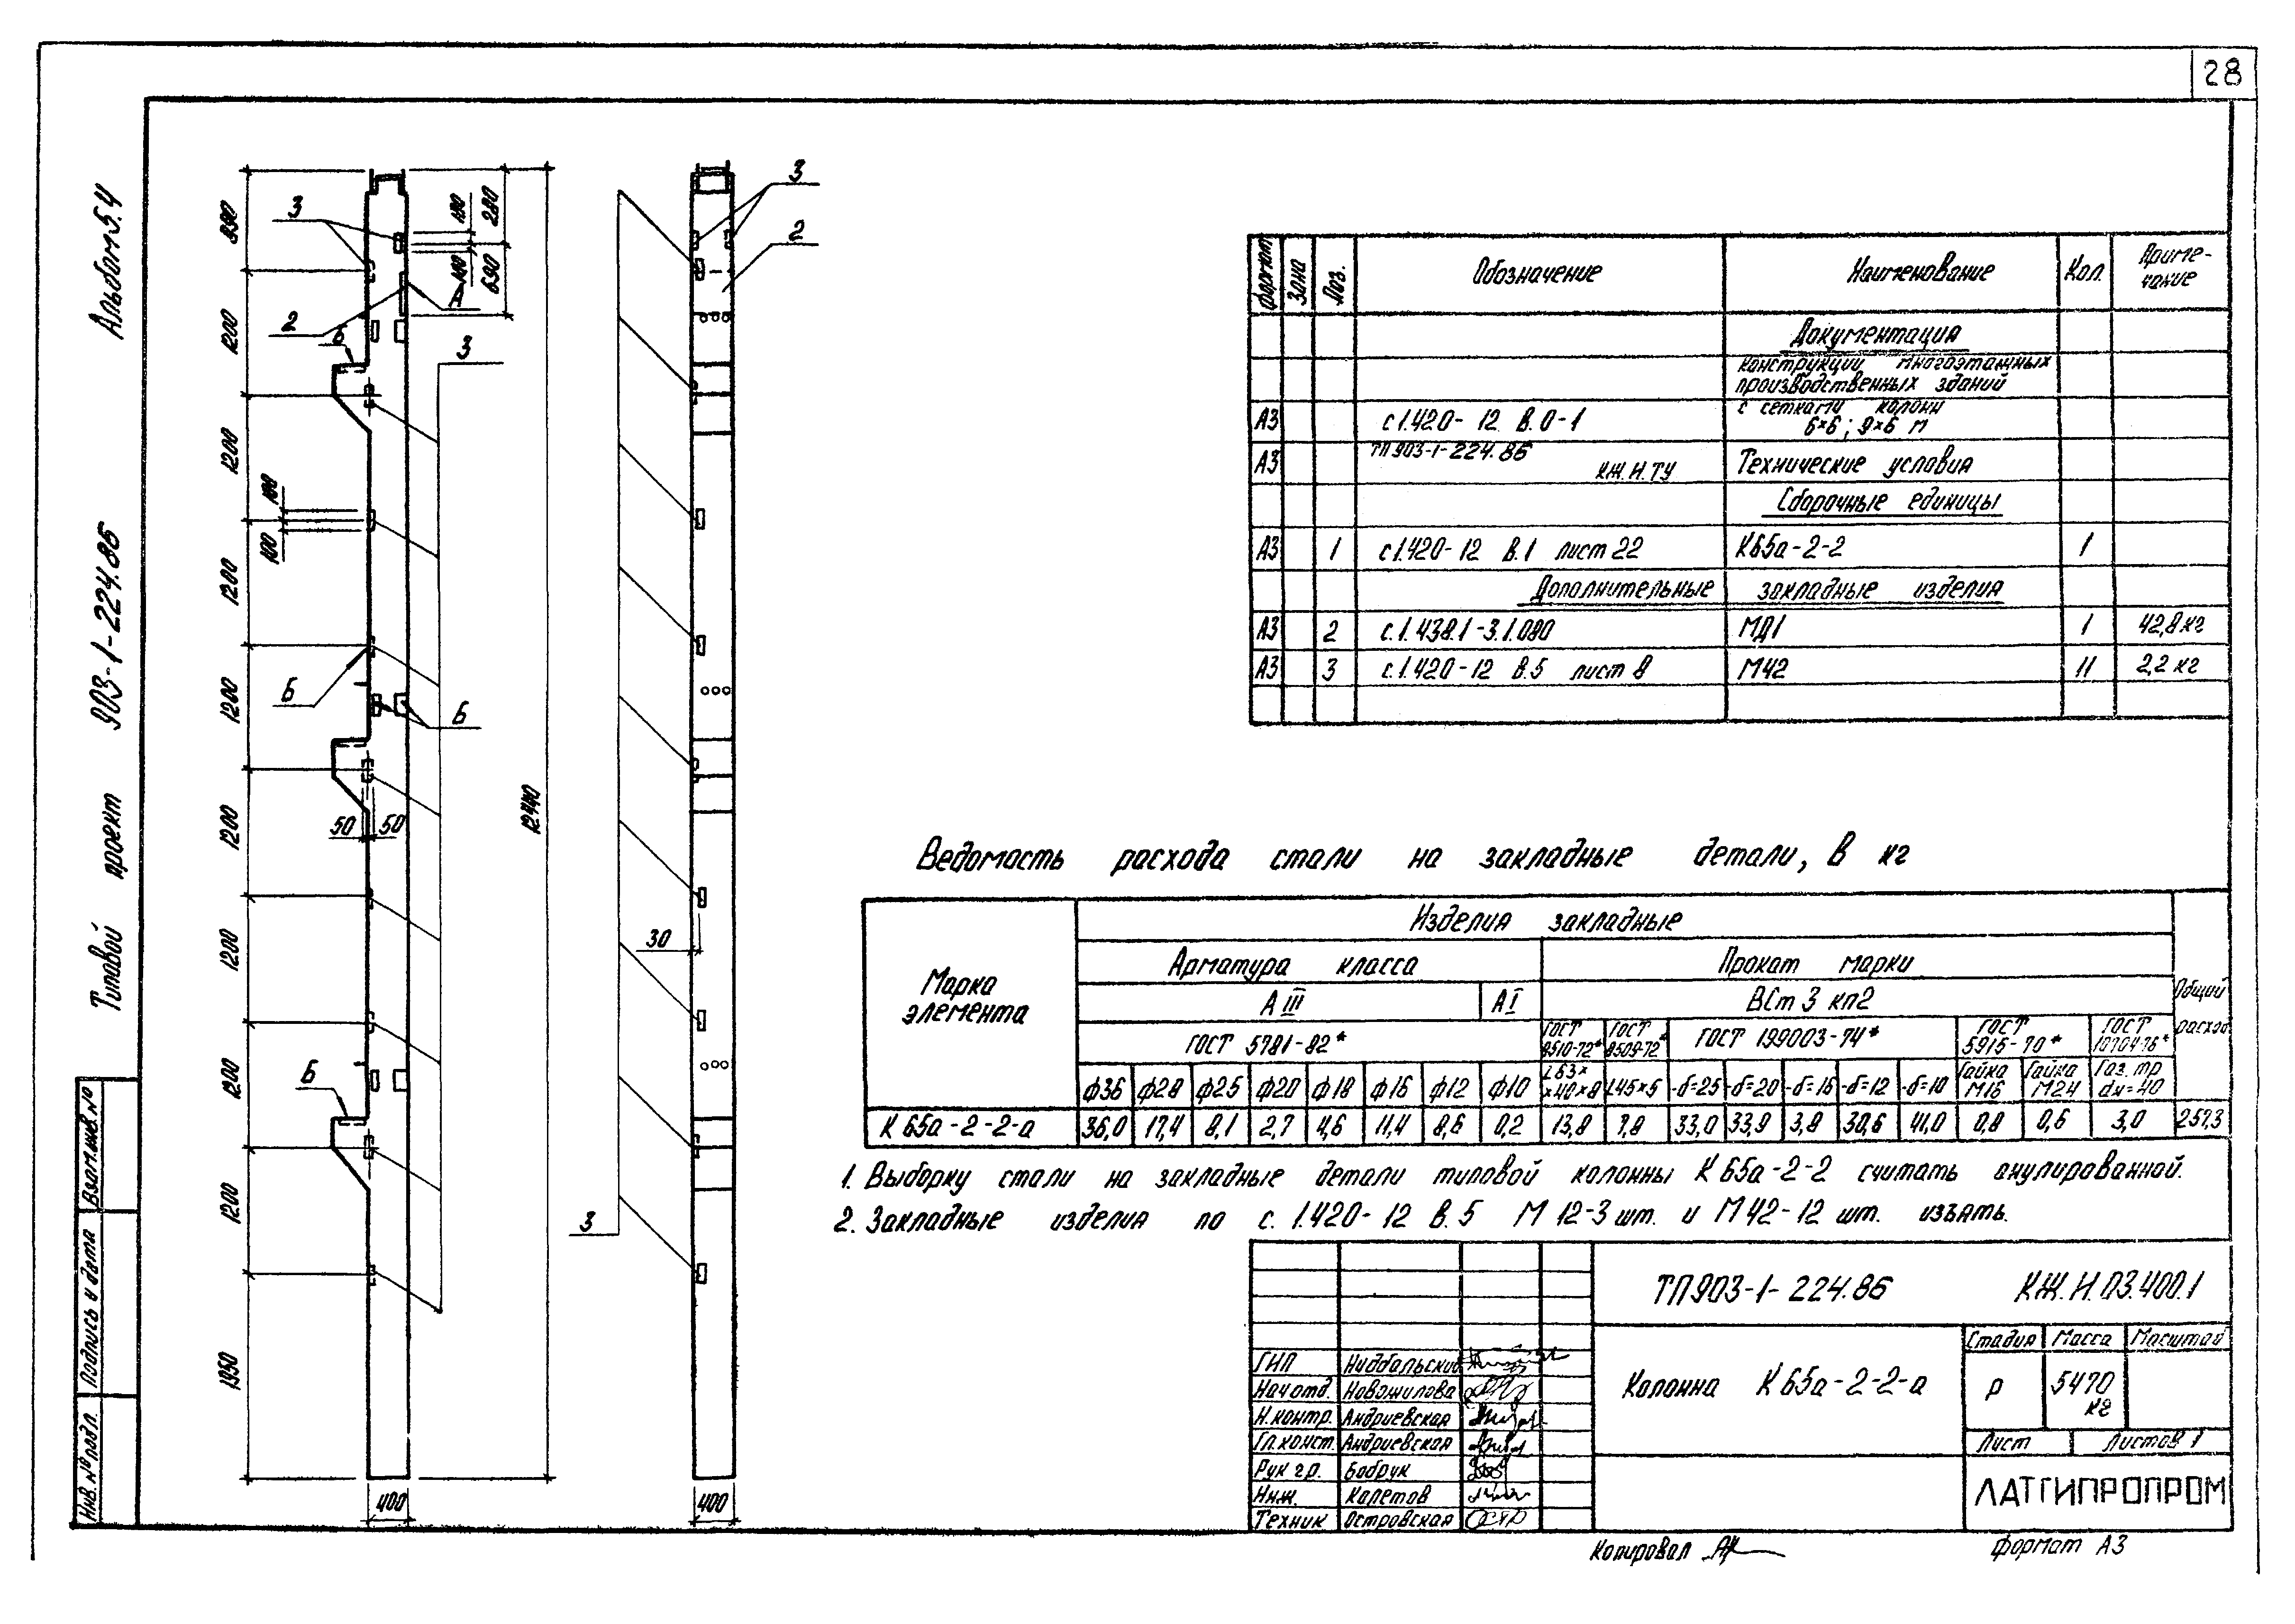 28
Альбом 5.4
Типовой проект 903-1-224.86
Взам.инв.№
Подпись и дата
Инв.№ подл.
3
2
Б
А
3
Б
Б
Б
3
2
3
990
1200
1200
1200
1200
1200
1200
1200
1200
1950
100
100
100
100
280
690
12440
50
50
30
400
400
Формат
Зона
Поз.
Обозначение
Наименование
Кол.
Приме-
чание
Документация
конструкции многоэтажных
производственных зданий
с сетками колонн
А3 с 1.420-12 В.0-1 6×6; 9×6 м
ТП903-1-224.86
А3 КЖ.И.ТУ Технические условия
Сборочные единицы
А3 1 с1.420-12 В.1 лист 22 К65а-2-2 1
Дополнительные закладные изделия
А3 2 с.1.438.1-3.1.080 МД1 1 42,8 кг
А3 3 с.1.420-12 В.5 лист 8 М42 11 2,2 кг
Ведомость расхода стали на закладные детали, в кг
Марка
элемента
Изделия закладные
Общий
расход
Арматура класса
Прокат марки
А III
А I
ВСт 3 кп2
ГОСТ 5781-82*
ГОСТ
8510-72*
ГОСТ
8509-72*
ГОСТ 199003-74*
ГОСТ
5915-70*
ГОСТ
10704-76*
ф36 ф28 ф25 ф20 ф18 ф16 ф12 ф10
L63×
×40×8
L45×5 -δ=25 -δ=20 -δ=16 -δ=12 -δ=10
Гайка
М16
Гайка
М24
Газ. тр
dу=40
К 65а-2-2-а 36,0 17,4 8,1 2,7 4,6 11,4 8,6 0,2 13,8 7,8 33,0 33,9 3,8 30,6 41,0 0,8 0,6 3,0 257,3
1. Выборку стали на закладные детали типовой колонны К 65а-2-2 считать анулированной.
2. Закладные изделия по с. 1.420-12 В.5 М 12-3 шт. и М 42-12 шт. изъять.
ТП903-1-224.86 КЖ.И.03.400.1
Колонна К65а-2-2-а
Стадия Масса Масштаб
Р 5470
кг
Лист Листов 1
ЛАТГИПРОПРОМ
ГИП Нидбальский
Нач отд. Новожилова
Н.контр. Андриевская
Гл.конст. Андриевская
Рук гр. Бобрук
Инж. Калетов
Техник Островская
Копировал
Формат А3